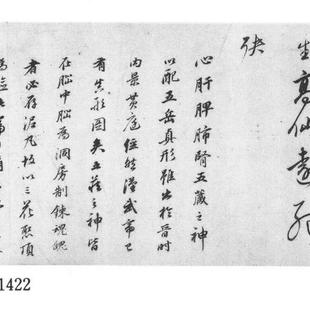 生高仙遺
訣
心肝脾肺腎五藏之神
以配五岳真形雖出於晉時
内景黄庭位然漢武帝已
有真形圖矣五藏之神皆
在腦中腦為洞房制錬魂魄
者必存泥丸故以三花聚頂
1422